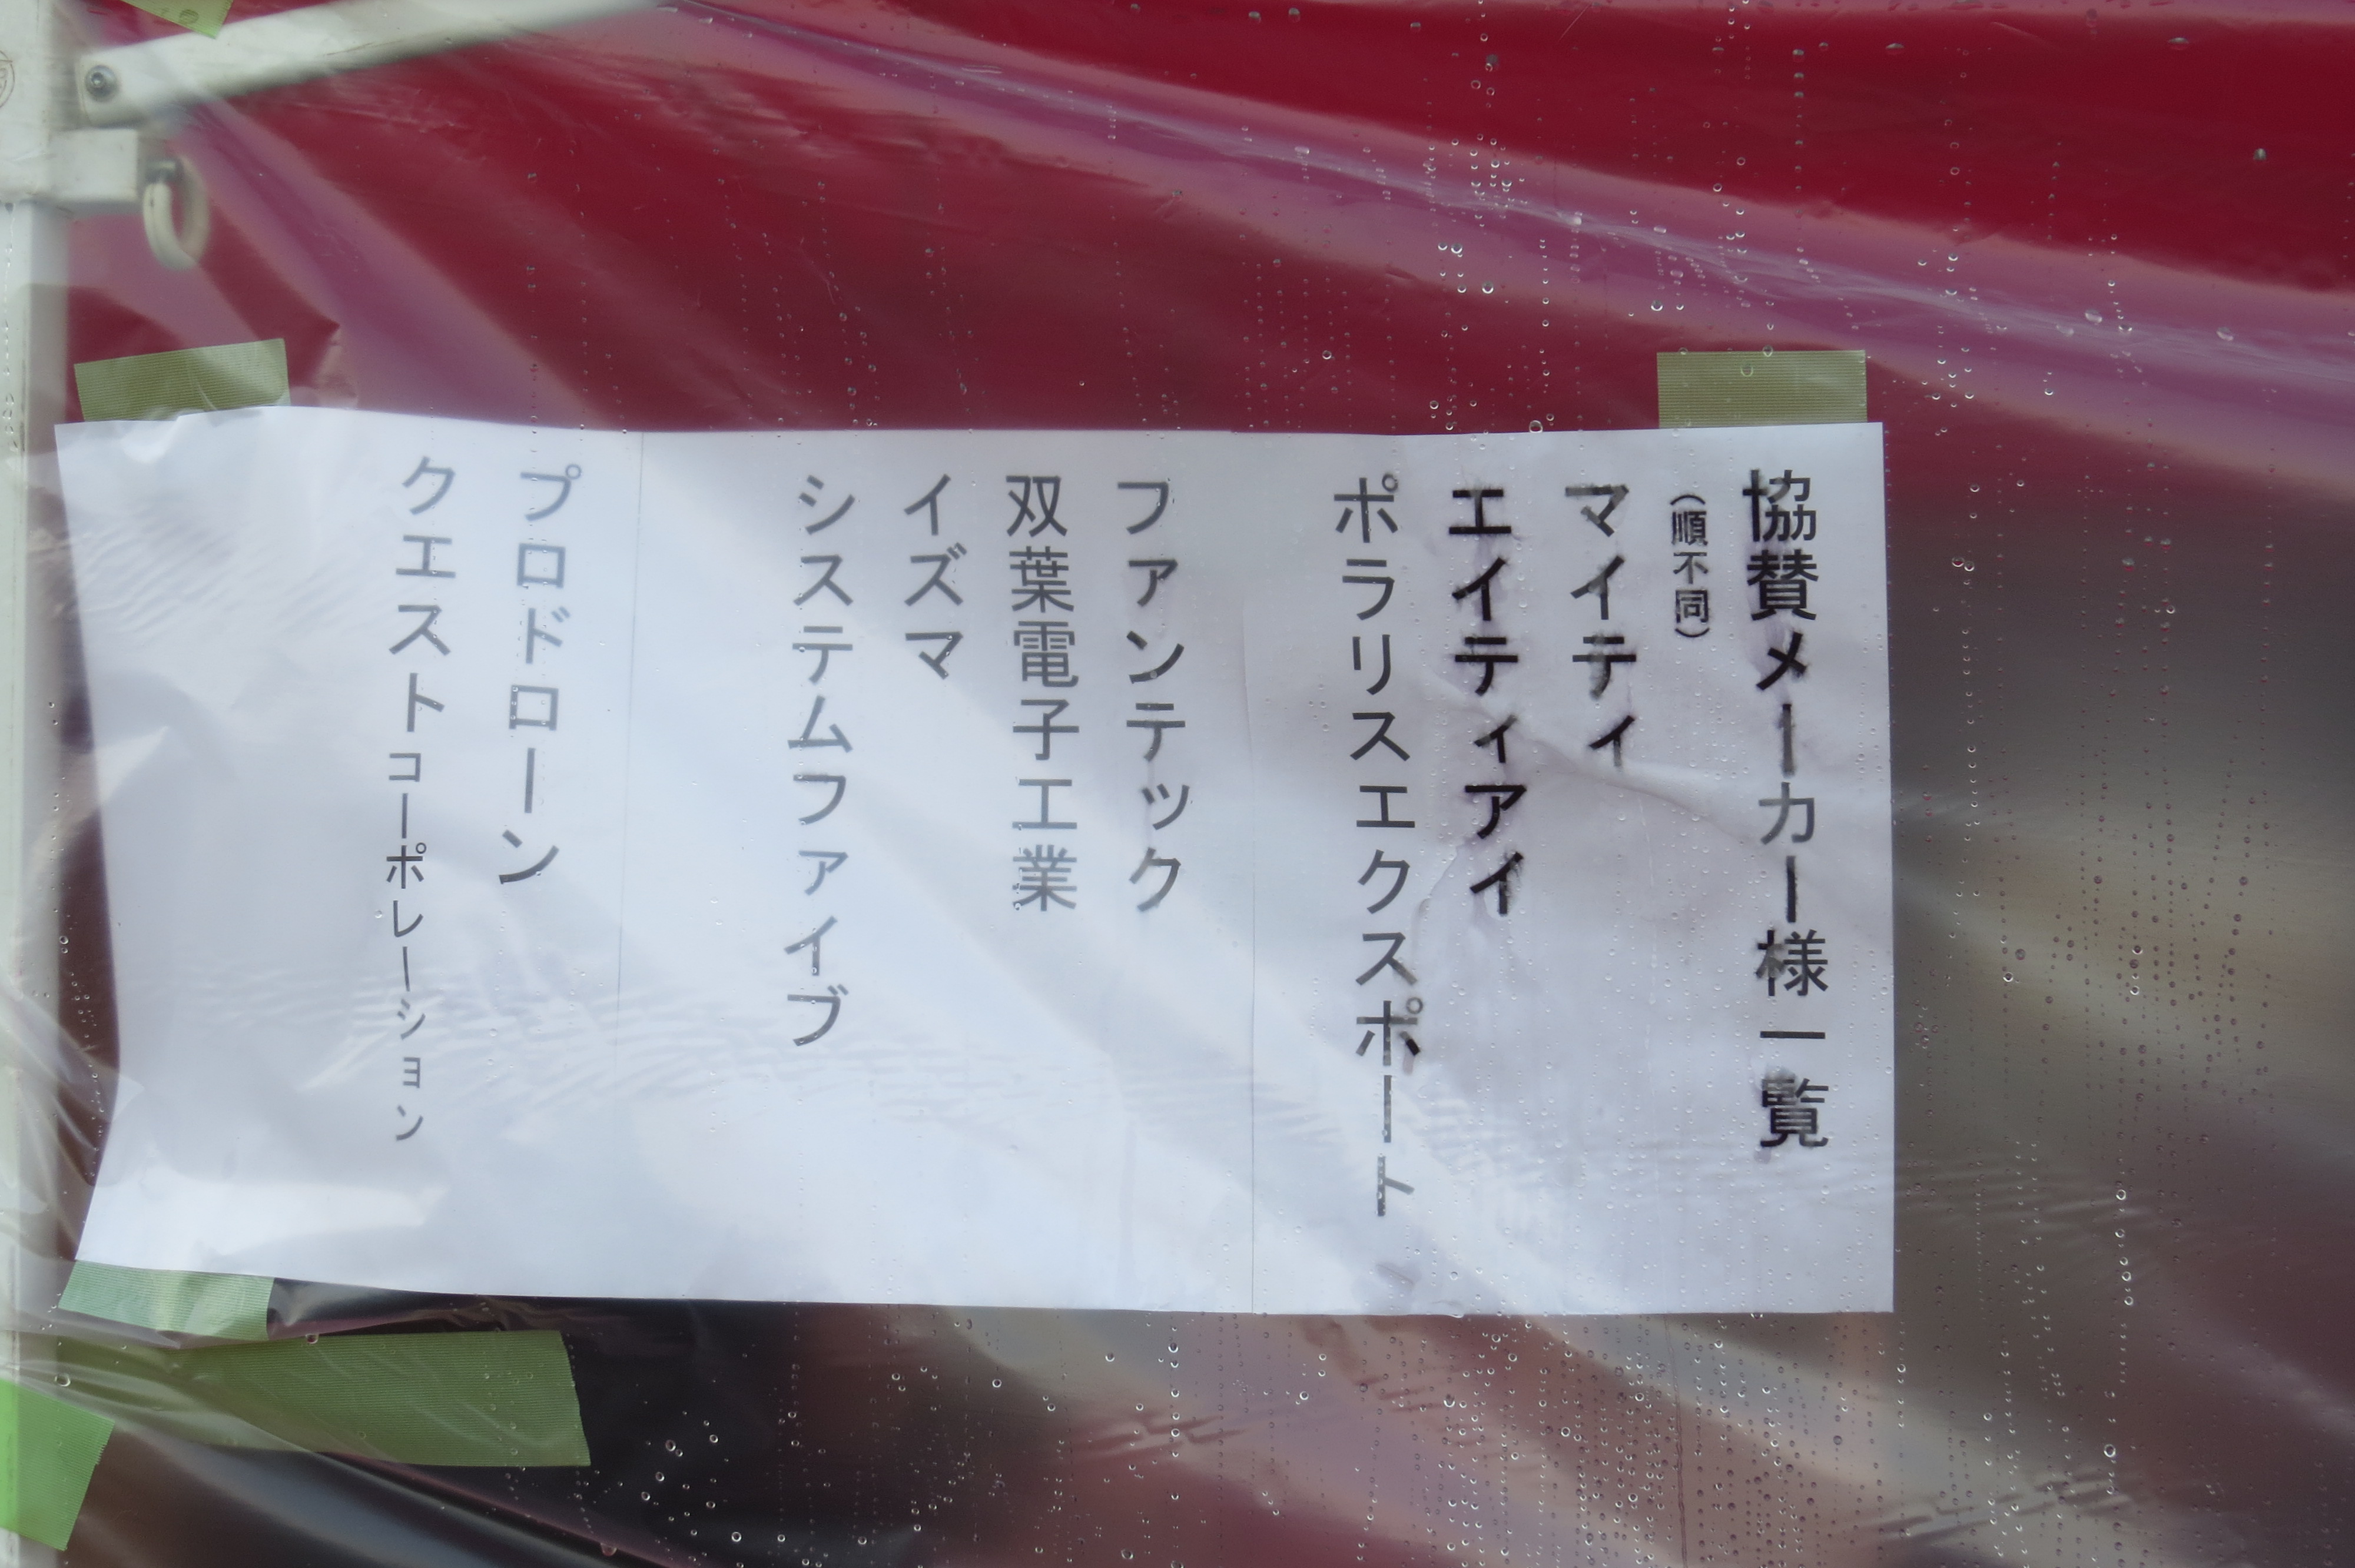 協賛メーカー様一覧
（順不同）
マイティ
エイティアイ
ポラリスエクスポート
ファンテック
双葉電子工業
イズマ
システムファイブ
プロドローン
クエストコーポレーション